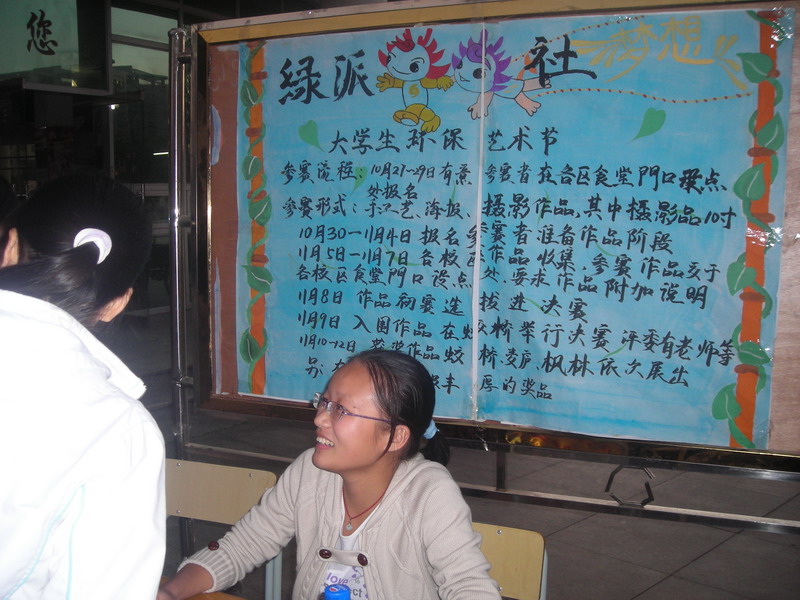 您
绿派 社
梦想
大学生环保 艺术节
参赛流程:10月27-29日有意 参赛者在各区食堂門口设点
处报名
参赛形式:手工艺、海报、摄影作品,其中摄影品10寸
10月30一11月4日 报名参赛者准备作品阶段
11月5日一11月7日 各校区作品收集 参赛作品交于
各校区食堂門口设点处,要求作品附加说明
11月8日 作品初赛选拔进决赛
11月9日 入围作品在蛟桥举行决赛 评委有老师等
11月10-12日 获奖作品蛟桥麦庐、枫林依次展出
丰厚的奖品
love